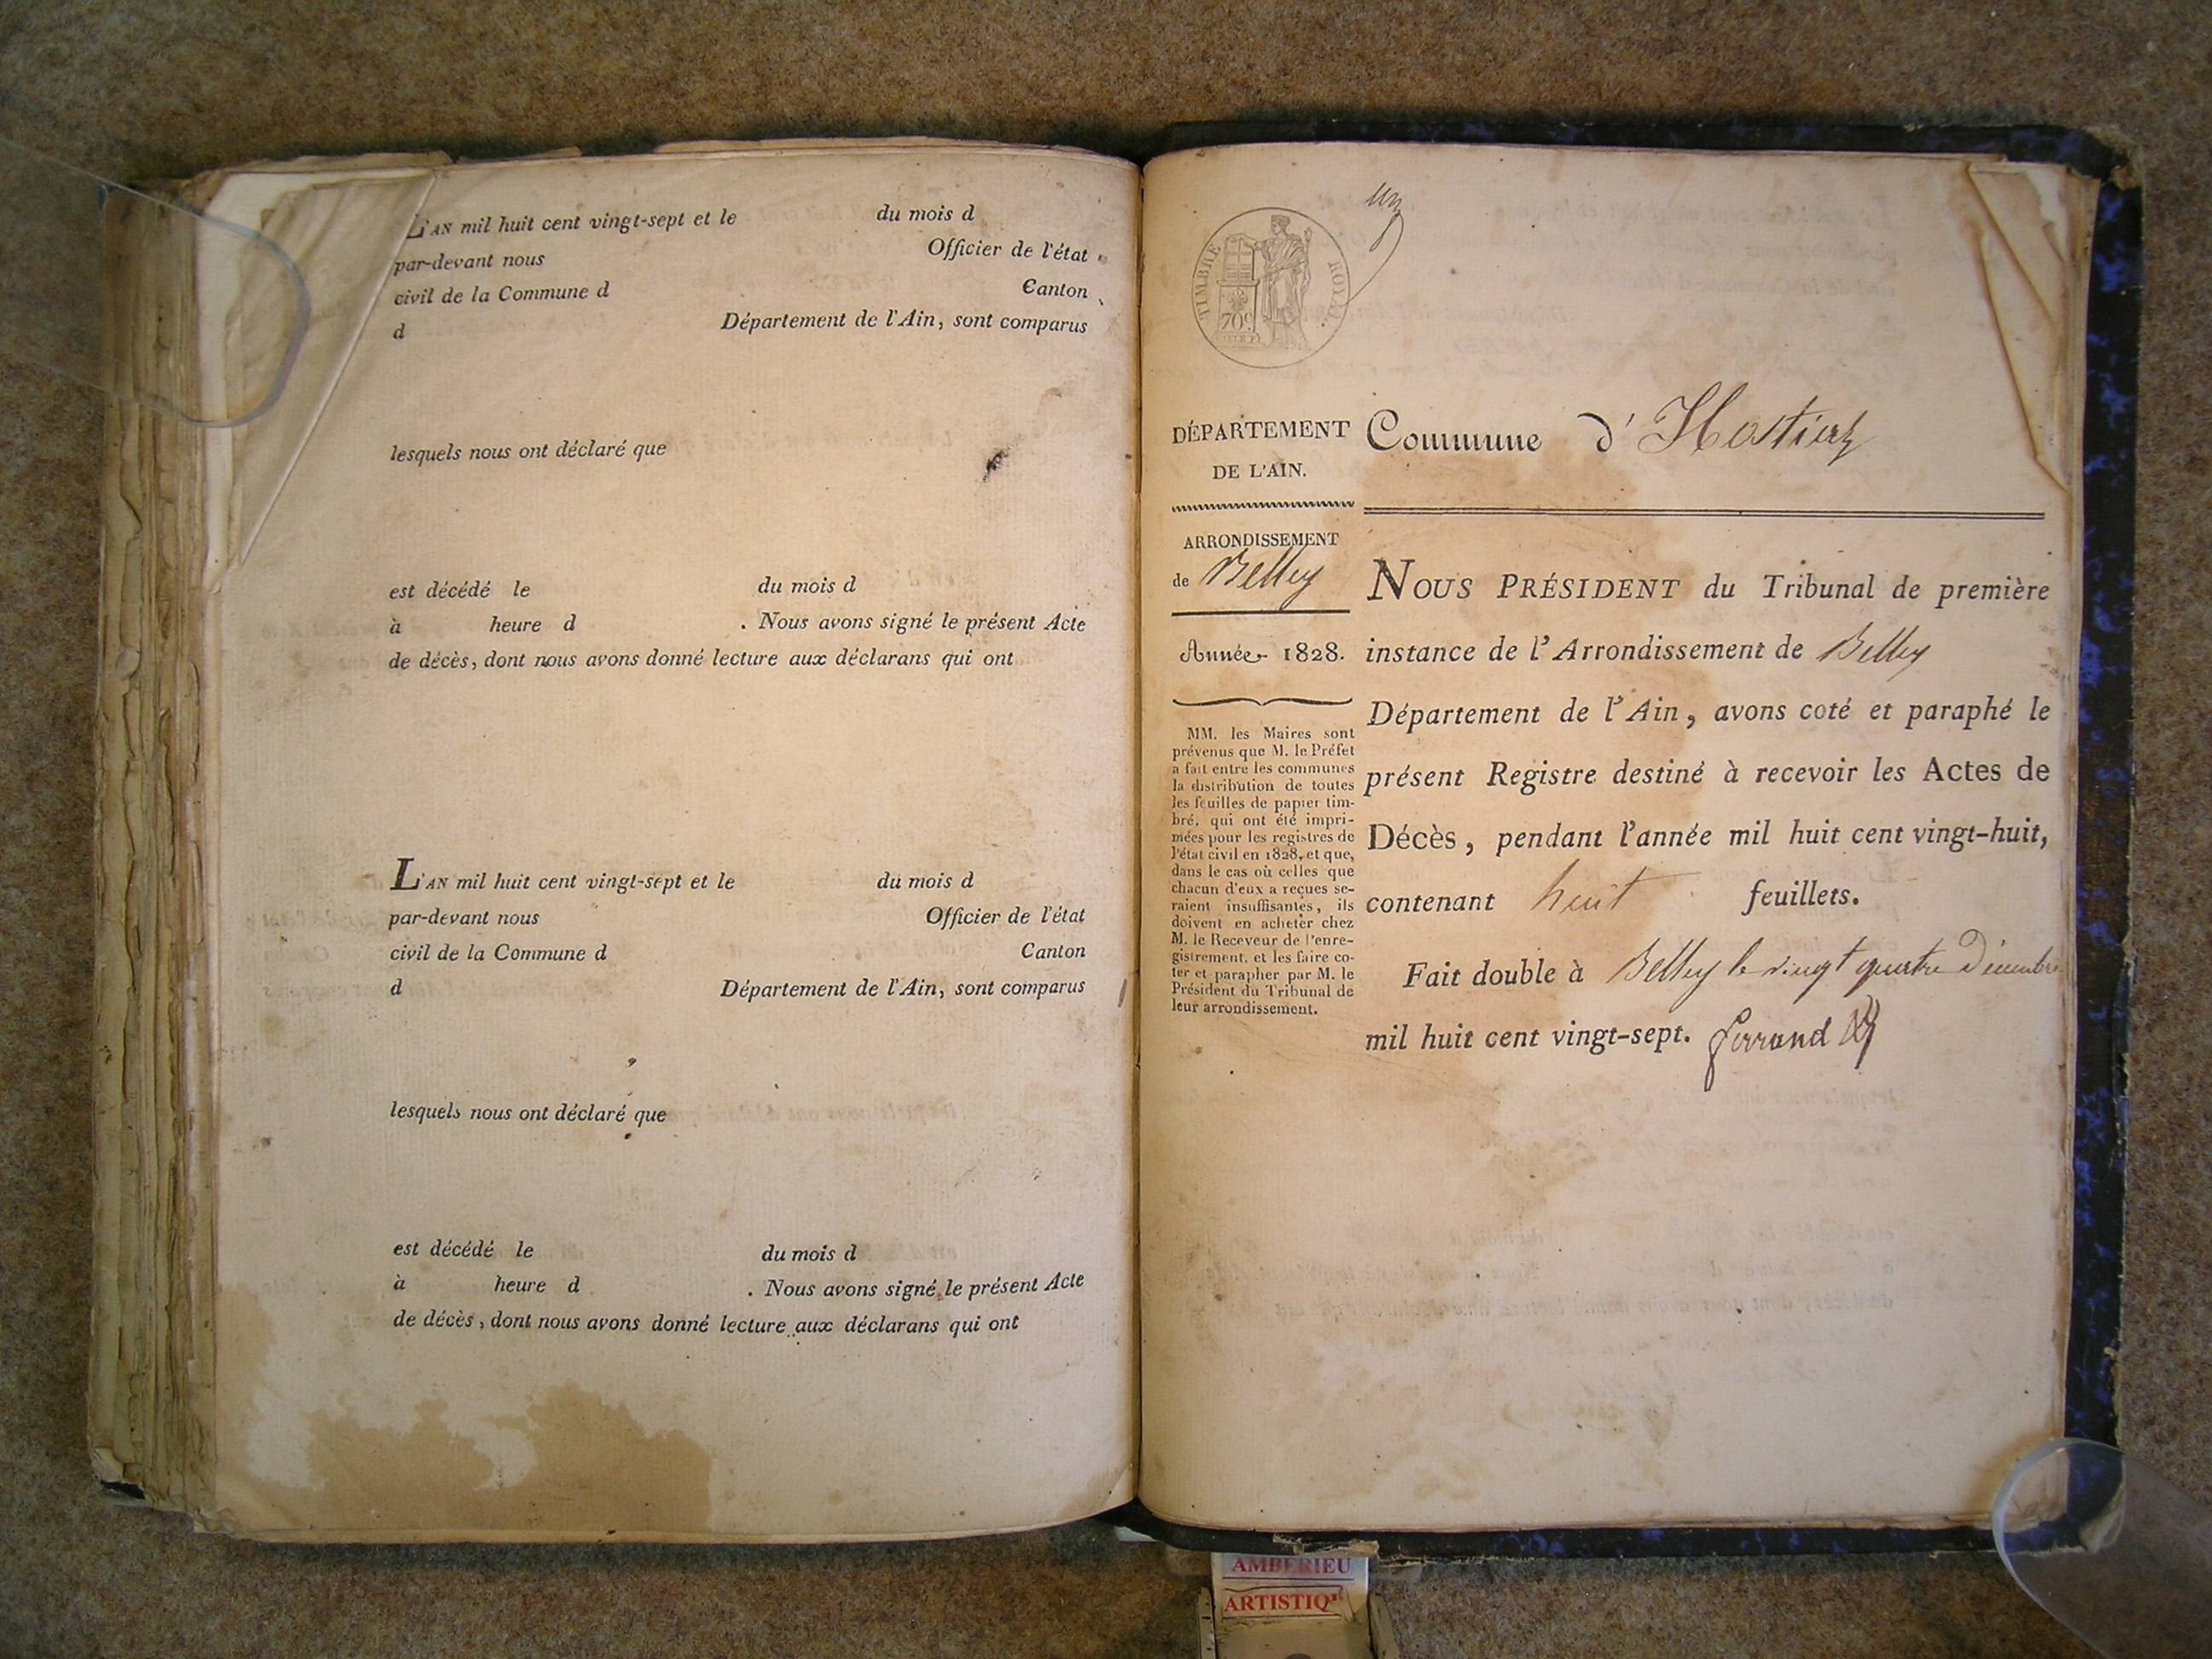 L'AN mil huit cent vingt-sept et le du mois d
par-devant nous Officier de l'état
civil de la Commune d Canton
d Département de l'Ain, sont comparus
lesquels nous ont déclaré que
est décédé le du mois d
à heure d . Nous avons signé le présent Acte
de décès, dont nous avons donné lecture aux déclarans qui ont
L'AN mil huit cent vingt-sept et le du mois d
par-devant nous Officier de l'état
civil de la Commune d Canton
d Département de l'Ain, sont comparus
lesquels nous ont déclaré que
est décédé le du mois d
à heure d . Nous avons signé le présent Acte
de décès, dont nous avons donné lecture aux déclarans qui ont
un
TIMBRE ROYAL.
70c.
DÉPARTEMENT
DE L'AIN.
ARRONDISSEMENT
de Belley
Année 1828.
MM. les Maires sont
prévenus que M. le Préfet
a fait entre les communes
la distribution de toutes
les feuilles de papier tim-
bré, qui ont été impri-
mées pour les registres de
l'état civil en 1828, et que,
dans le cas où celles que
chacun d'eux a reçues se-
raient insuffisantes, ils
doivent en acheter chez
M. le Receveur de l'enre-
gistrement, et les faire co-
ter et parapher par M. le
Président du Tribunal de
leur arrondissement.
Commune d'Hostiaz
NOUS PRÉSIDENT du Tribunal de première
instance de l'Arrondissement de Belley
Département de l'Ain, avons coté et paraphé le
présent Registre destiné à recevoir les Actes de
Décès, pendant l'année mil huit cent vingt-huit,
contenant huit feuillets.
Fait double à Belley le vingt quatre Décembre
mil huit cent vingt-sept. ferrand
AMBERIEU
ARTISTIQ